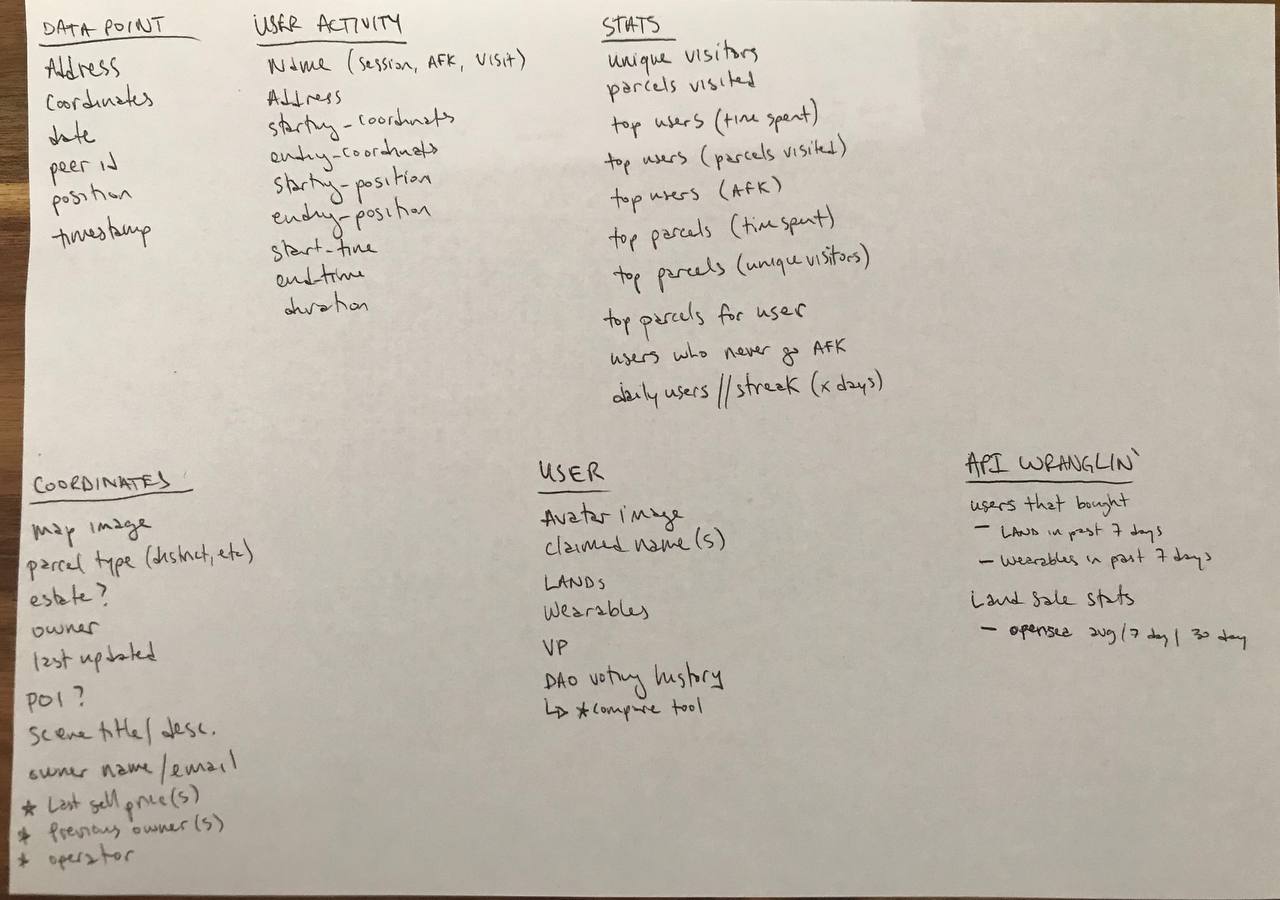 DATA POINT
Address
Coordinates
date
peer id
position
timestamp
USER ACTIVITY
Name (session, AFK, visit)
Address
starting_coordinates
ending_coordinates
starting_position
ending_position
start_time
end_time
duration
STATS
unique visitors
parcels visited
top users (time spent)
top users (parcels visited)
top users (AFK)
top parcels (time spent)
top parcels (unique visitors)
top parcels for user
users who never go AFK
daily users // streak (x days)
COORDINATES
map image
parcel type (district, etc)
estate?
owner
last updated
POI?
scene title/desc.
owner name/email
* Last sell price(s)
* previous owner(s)
* operator
USER
Avatar image
claimed name(s)
LANDs
Wearables
VP
DAO voting history
↳ *compare tool
API WRANGLIN'
users that bought
- LAND in past 7 days
- Wearables in past 7 days
Land Sale stats
- opensea avg/7 day/30 day